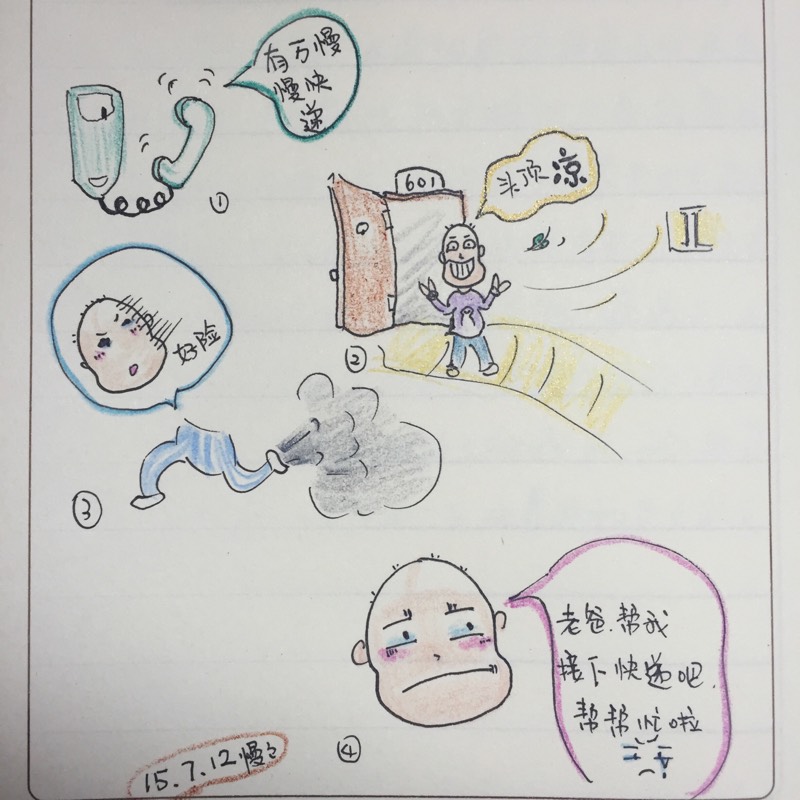 有万慢
慢快
递
①
601
头顶凉
②
好险
③
老爸.帮我
接下快递吧.
帮帮忙啦
④
15.7.12慢